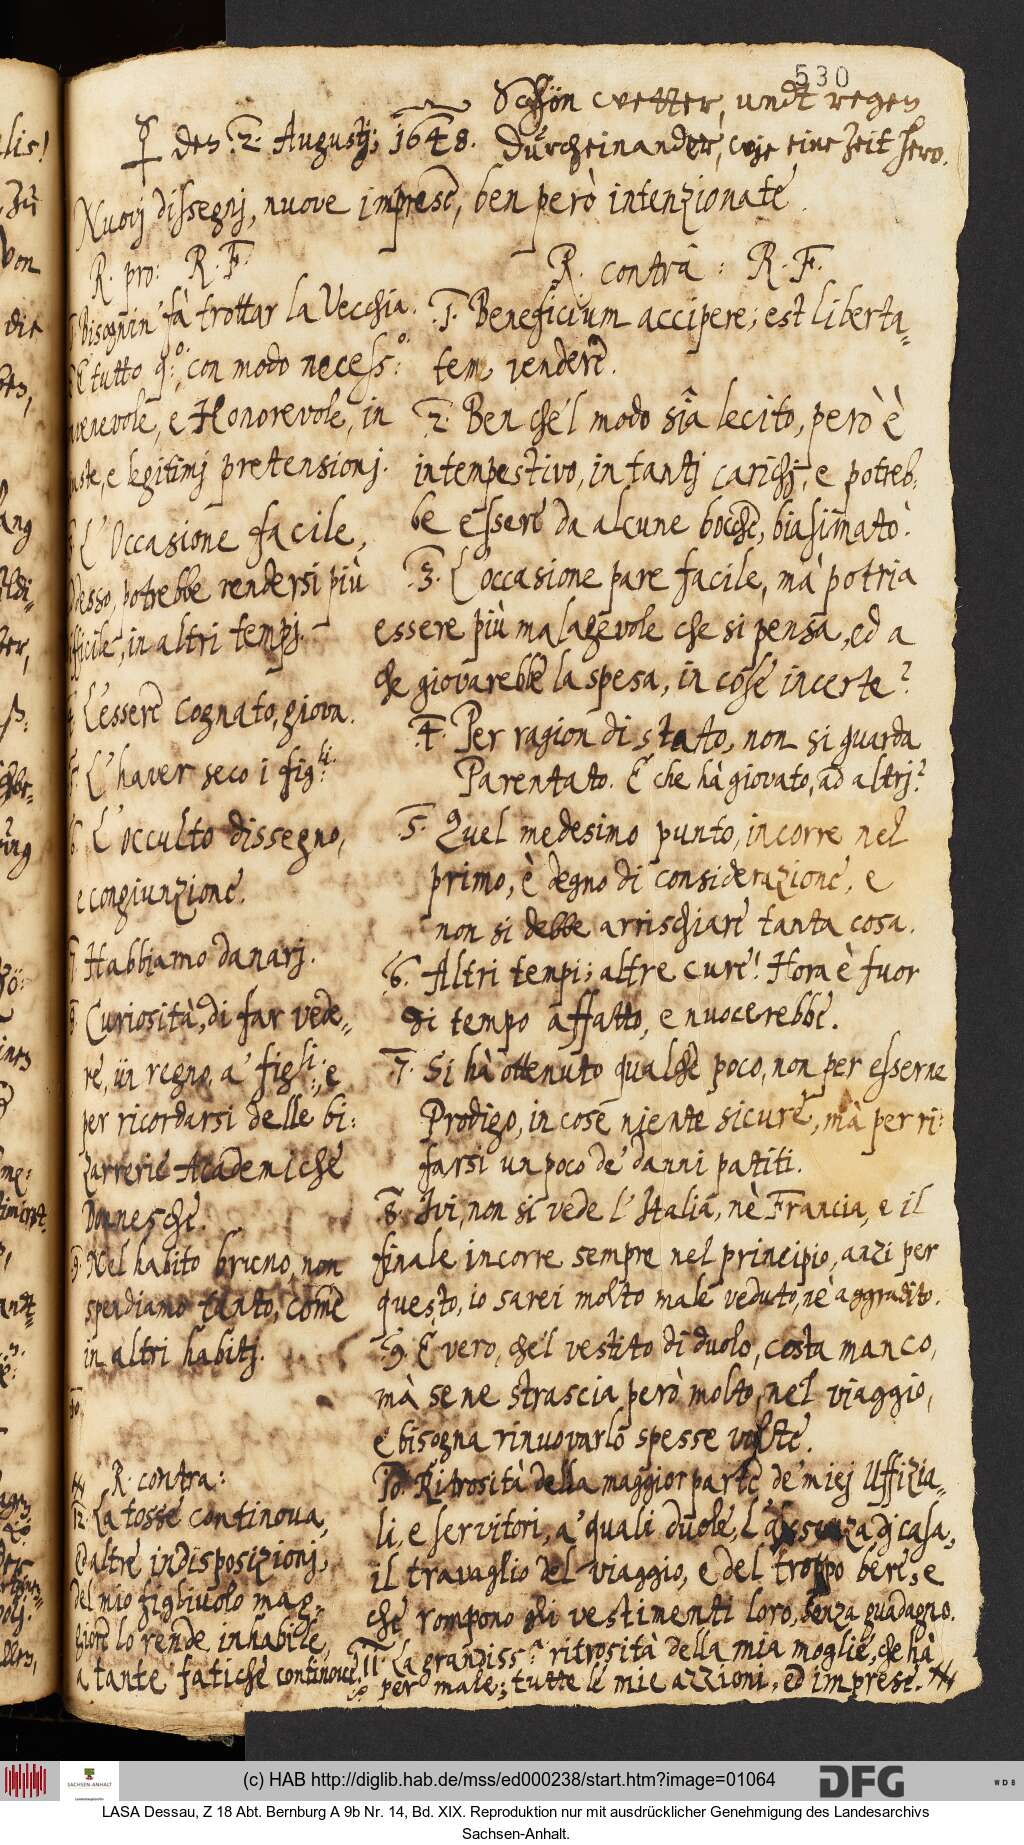 530
Schön wetter, undt regen
☿ den 2. Augustj; 1648. Durcheinander, wie eine Zeit hero.
Nuovj dissegnj, nuove imprese, ben però intenzionate.
R. pro: R. F.
Bisognin' fà trottar la Vecchia.
È tutto q.o: con modo necess.o:
e Honorevole, in
e legitimj pretensionj.
3. L'Occasione facile,
potrebbe rendersi più
in altri tempj.
4. L'essere Cognato, giova.
5. L'haver seco i fig.li:
6. L'occulto dissegno,
e congiunzione.
7. Habbiamo danarj.
8. Curiosità, di far vede=
re, un regno, a' figli:, e
per ricordarsi delle bi:
zarrerie Academiche
Donnesche.
9. Nel habito bruno, non
spendiamo tanto, come
in altri habitj.
10.
R. contra:
12. La tosse continova,
ed altre indisposizionj,
del mio figliuolo mag=
giore lo rende innabile,
a tante fatiche continove.
R. contra: R. F.
1. Beneficium accipere; est liberta=
tem vendere.
2. Ben che'l modo sia lecito, però è
intempestivo, in tantj carichj, e potreb:
be essere da alcune bocche, biasimato.
3. L'occasione pare facile, mà potria
essere più malagevole che si pensa, ed a
che giovarebbe la spesa, in cose incerte?
4. Per ragion di stato, non si guarda
Parentato. E che hà giovato, ad altrj?
5. Quel medesimo punto, incorre nel
primo, è degno di considerazione, e
non si debbe arrischiare tanta cosa.
6. Altri tempi; altre cure! Hora è fuor
di tempo affatto, e nuocerebbe.
7. Si hà ottenuto qualche poco, non per esserne
Prodigo, in cose niente sicure, mà per ri:
farsi un poco de' danni patiti.
8. Ivi, non si vede l'Italia, nè Francia, e il
finale incorre sempre nel principio, anzi per
questo, io sarei molto male veduto, nè aggradito.
9. È vero, che'l vestito di duolo, costa manco,
mà se ne strascia però molto, nel viaggio,
e bisogna rinuovarlo spesse volte.
10. Ritrosità della maggior parte de' miej Uffizia=
li, e servitori, a' quali duole, l'assenza di casa,
il travaglio del viaggio, e del troppo bere, e
che rompono gli vestimenti loro, senza guadagno.
11. La grandiss.a: ritrosità della mia moglie, che hà
per male, tutte le mie azzioni, ed imprese.
(c) HAB http://diglib.hab.de/mss/ed000238/start.htm?image=01064
DFG
WDB
SACHSEN-ANHALT
LASA Dessau, Z 18 Abt. Bernburg A 9b Nr. 14, Bd. XIX. Reproduktion nur mit ausdrücklicher Genehmigung des Landesarchivs
Sachsen-Anhalt.